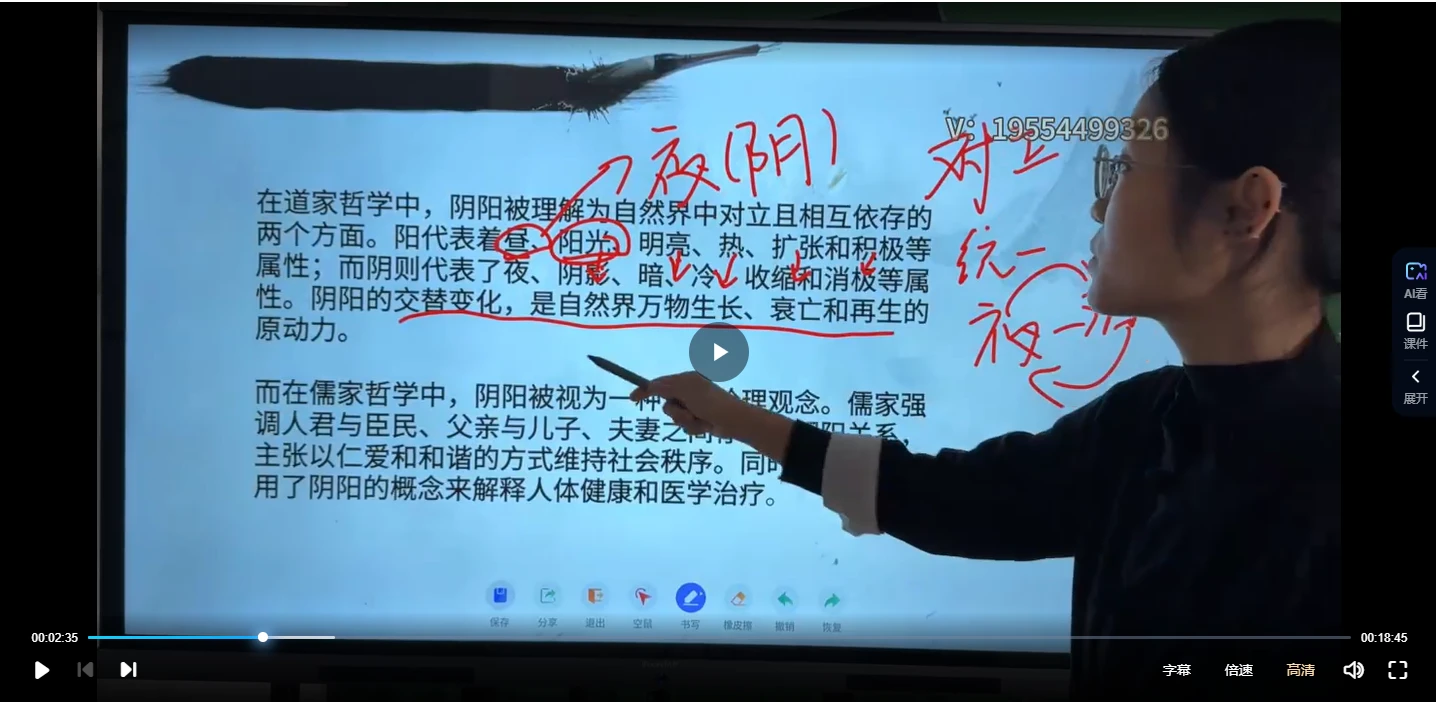 V：19554499326
夜(阴)
对立
统一
在道家哲学中，阴阳被理解为自然界中对立且相互依存的
两个方面。阳代表着昼、阳光、明亮、热、扩张和积极等
属性；而阴则代表了夜、阴影、暗、冷、收缩和消极等属
性。阴阳的交替变化，是自然界万物生长、衰亡和再生的
原动力。
夜
而在儒家哲学中，阴阳被视为一种 理观念。儒家强
调人君与臣民、父亲与儿子、夫妻之间 关系，
主张以仁爱和和谐的方式维持社会秩序。同
用了阴阳的概念来解释人体健康和医学治疗。
保存 分享 退出 空鼠 书写 橡皮擦 撤销 恢复
AI看
课件
展开
00:02:35 00:18:45
字幕 倍速 高清